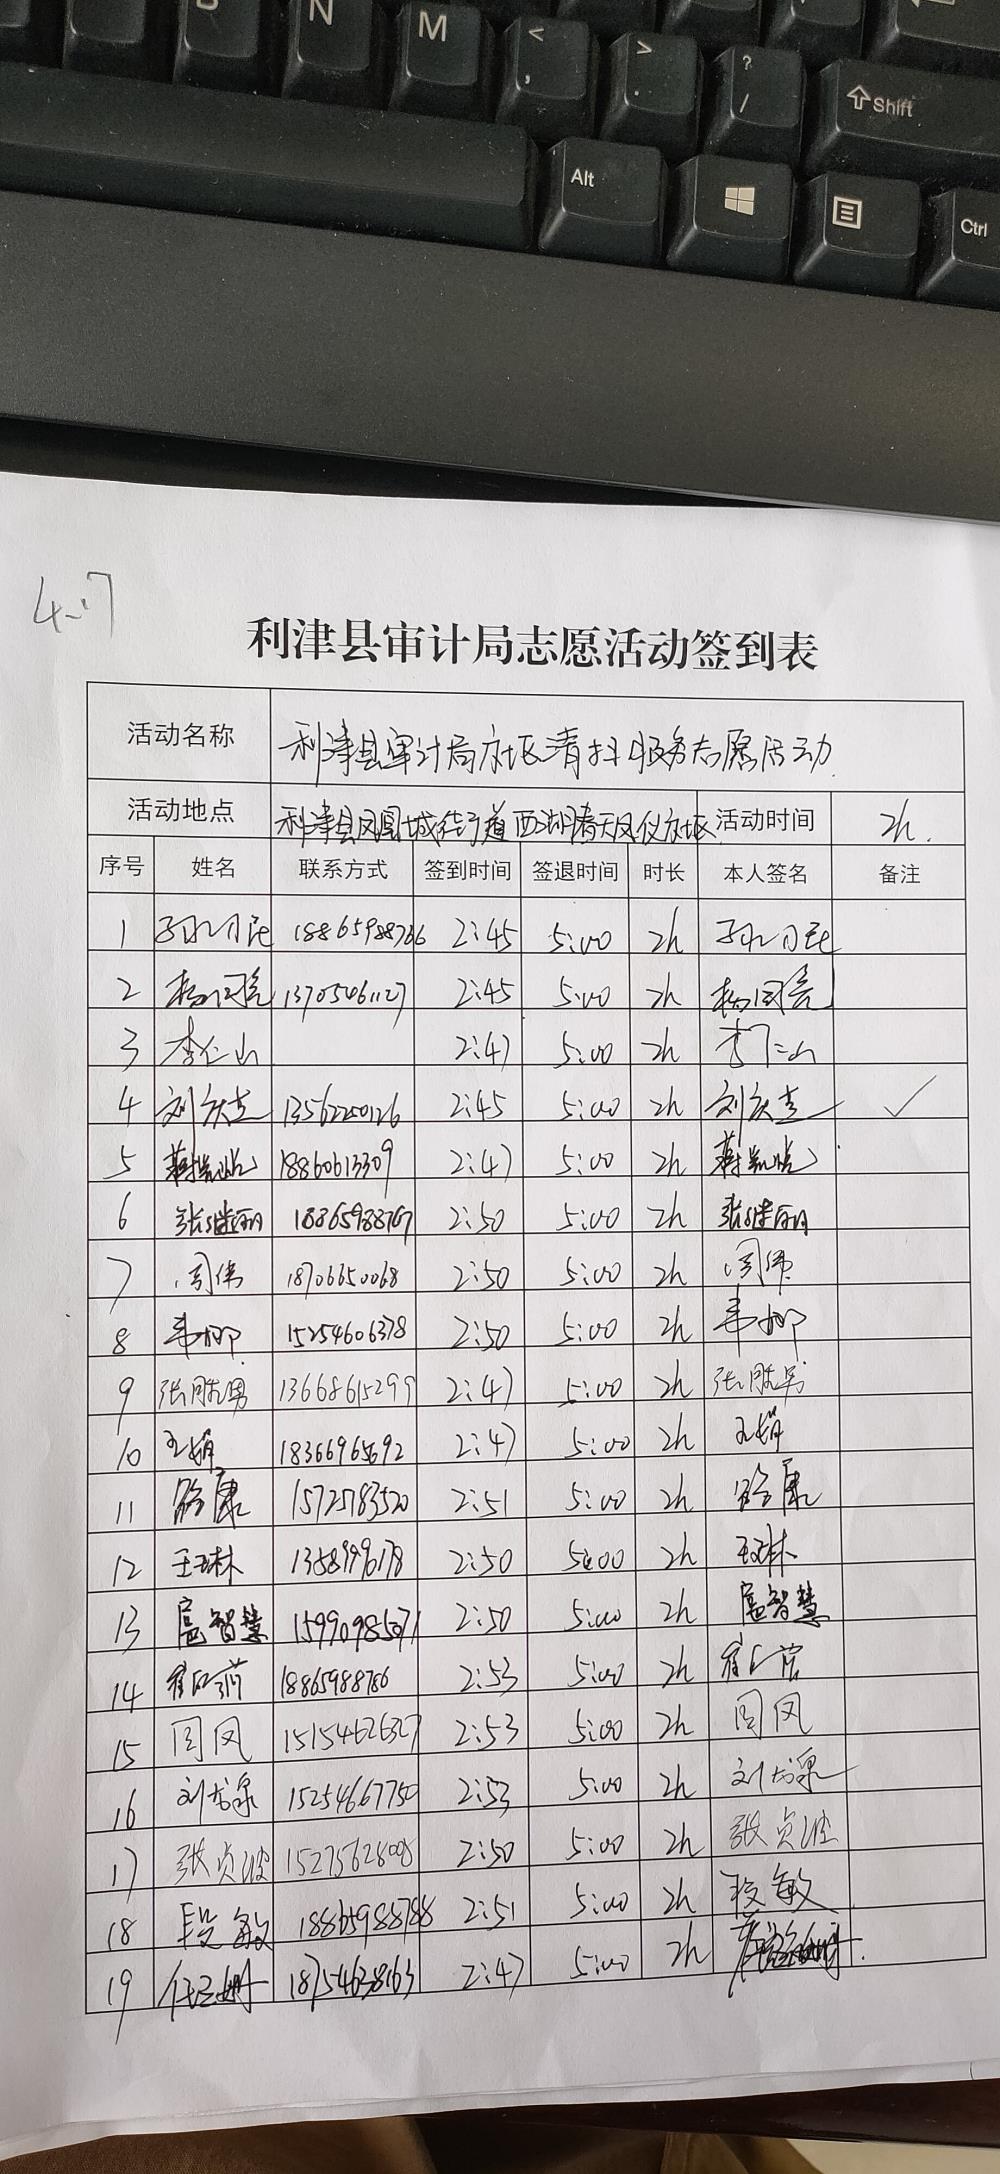 N M < , > . ? / Shift
Alt Ctrl
4.17
利津县审计局志愿活动签到表
活动名称 利津县审计局社区清扫服务志愿活动
活动地点 利津县凤凰城街道西湖春天凤仪社区 活动时间 2h.
序号 姓名 联系方式 签到时间 签退时间 时长 本人签名 备注
1 18865988766 2:45 5:00 2h
2 杨国亮 13705461127 2:45 5:00 2h 杨国亮
3 李仁山 2:47 5:00 2h 李仁山
4 刘庆吉 13562250126 2:45 5:00 2h 刘庆吉 ✓
5 18860613309 2:47 5:00 2h
6 张继丽 18865988767 2:50 5:00 2h 张继丽
7 周伟 18706650068 2:50 5:00 2h 周伟
8 韦娜 15254606378 2:50 5:00 2h 韦娜
9 张胜男 13668615299 2:47 5:00 2h 张胜男
10 王娟 18366965692 2:47 5:00 2h 王娟
11 路康 15725783520 2:51 5:00 2h 路康
12 王琳 13589996178 2:50 5:00 2h 王琳
13 扈智慧 15990985071 2:50 5:00 2h 扈智慧
14 18865988786 2:53 5:00 2h
15 周凤 15154626327 2:53 5:00 2h 周凤
16 刘书泉 15254667750 2:53 5:00 2h 刘书泉
17 张贞波 15275628008 2:50 5:00 2h 张贞波
18 段敏 18865988788 2:51 5:00 2h 段敏
19 18754638163 2:47 5:00 2h